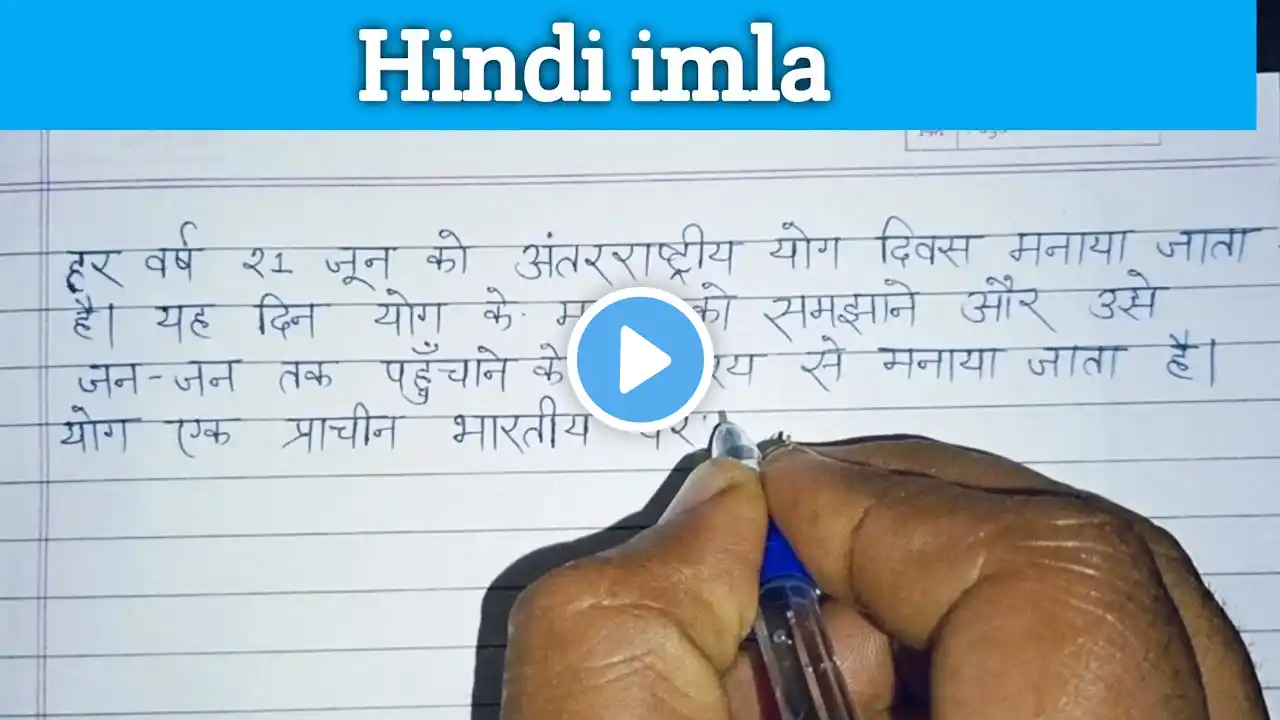 Hindi imla
हर वर्ष २1 जून को अंतरराष्ट्रीय योग दिवस मनाया जाता
है। यह दिन योग के को समझाने और उसे
जन-जन तक पहुँचाने के से मनाया जाता है।
योग एक प्राचीन भारतीय